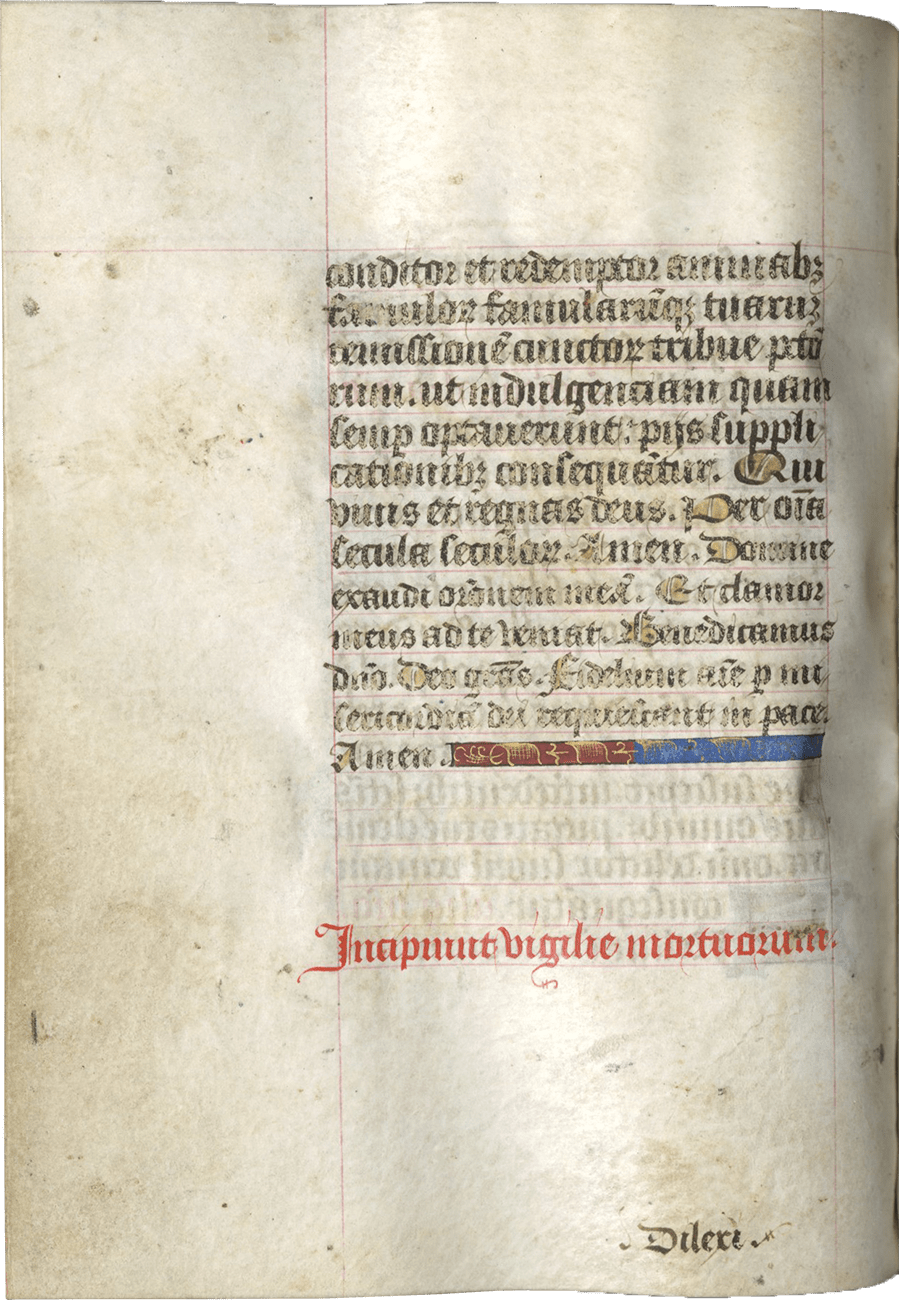 conditor et redemptor animabꝫ
famulor famularūqꝫ tuaruꝫ
remissionē cunctor tribue pctō
rum. ut indulgenciam quam
semp optauerunt: pijs suppli
cationibꝫ consequātur. Qui
viuis et regnas deus. Per oīa
secula seculor. Amen. Domine
exaudi orōnem meā. Et clamor
meus ad te veniat. Benedicamus
dnō. Deo grās. Fidelium aīe p mi
sericordiā dei requiescant in pace.
Amen.
Incipiunt vigilie mortuorum.
. Dilexi .